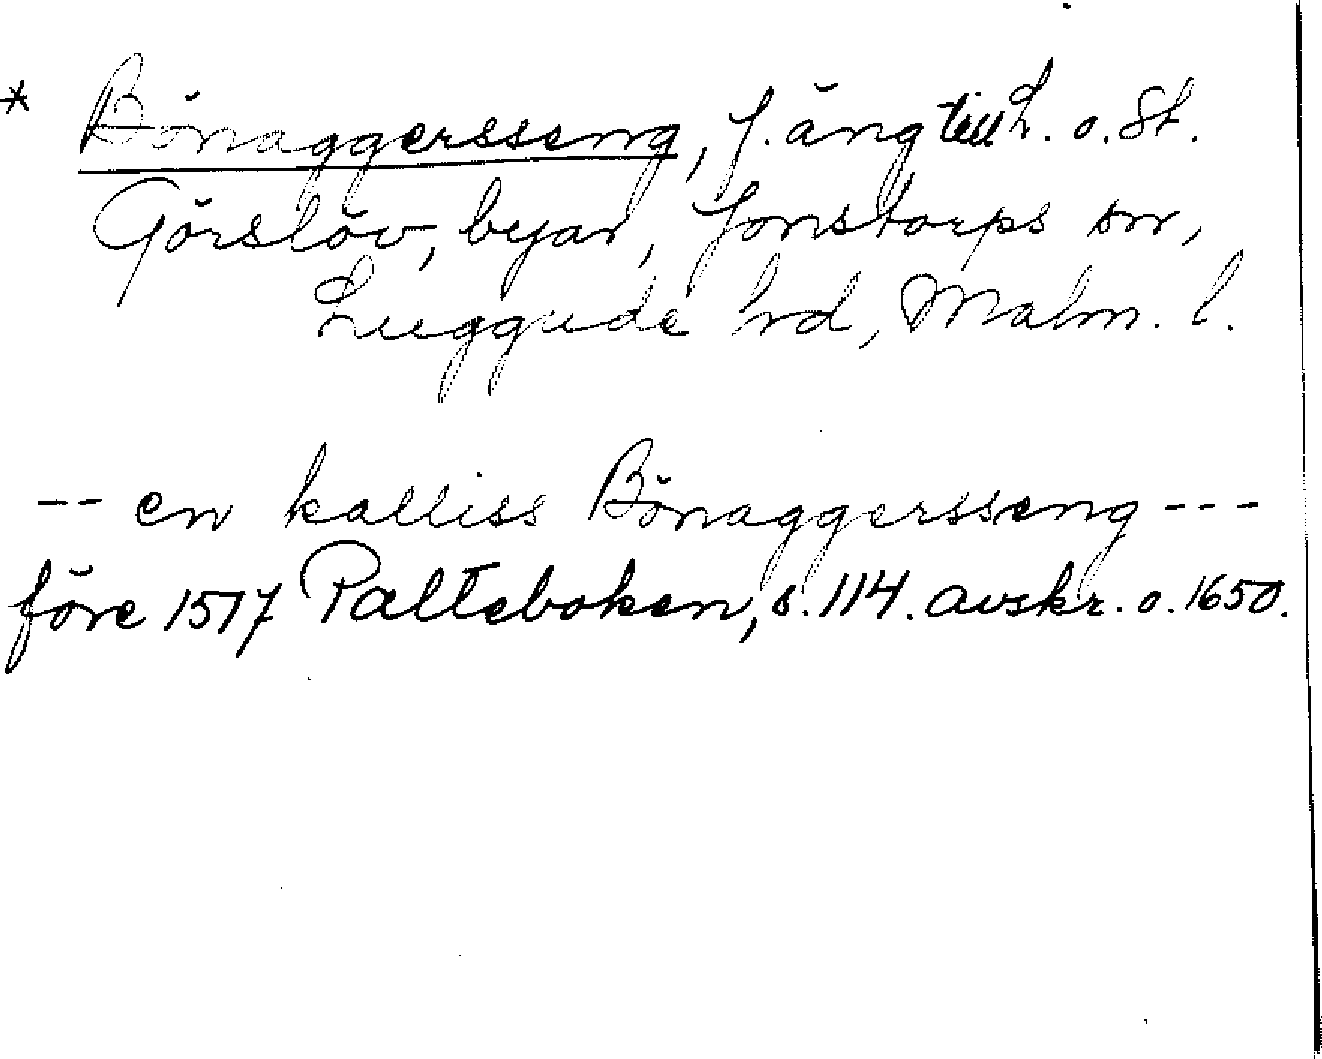 * Bönaggersseng, f. äng till L. o. St.
Görslöv, byar, Jonstorps sn,
Luggude hd, Malm. l.
-- en kalliss Bönaggersseng ---
före 1517 Palteboken, s. 114. avskr. o. 1650.